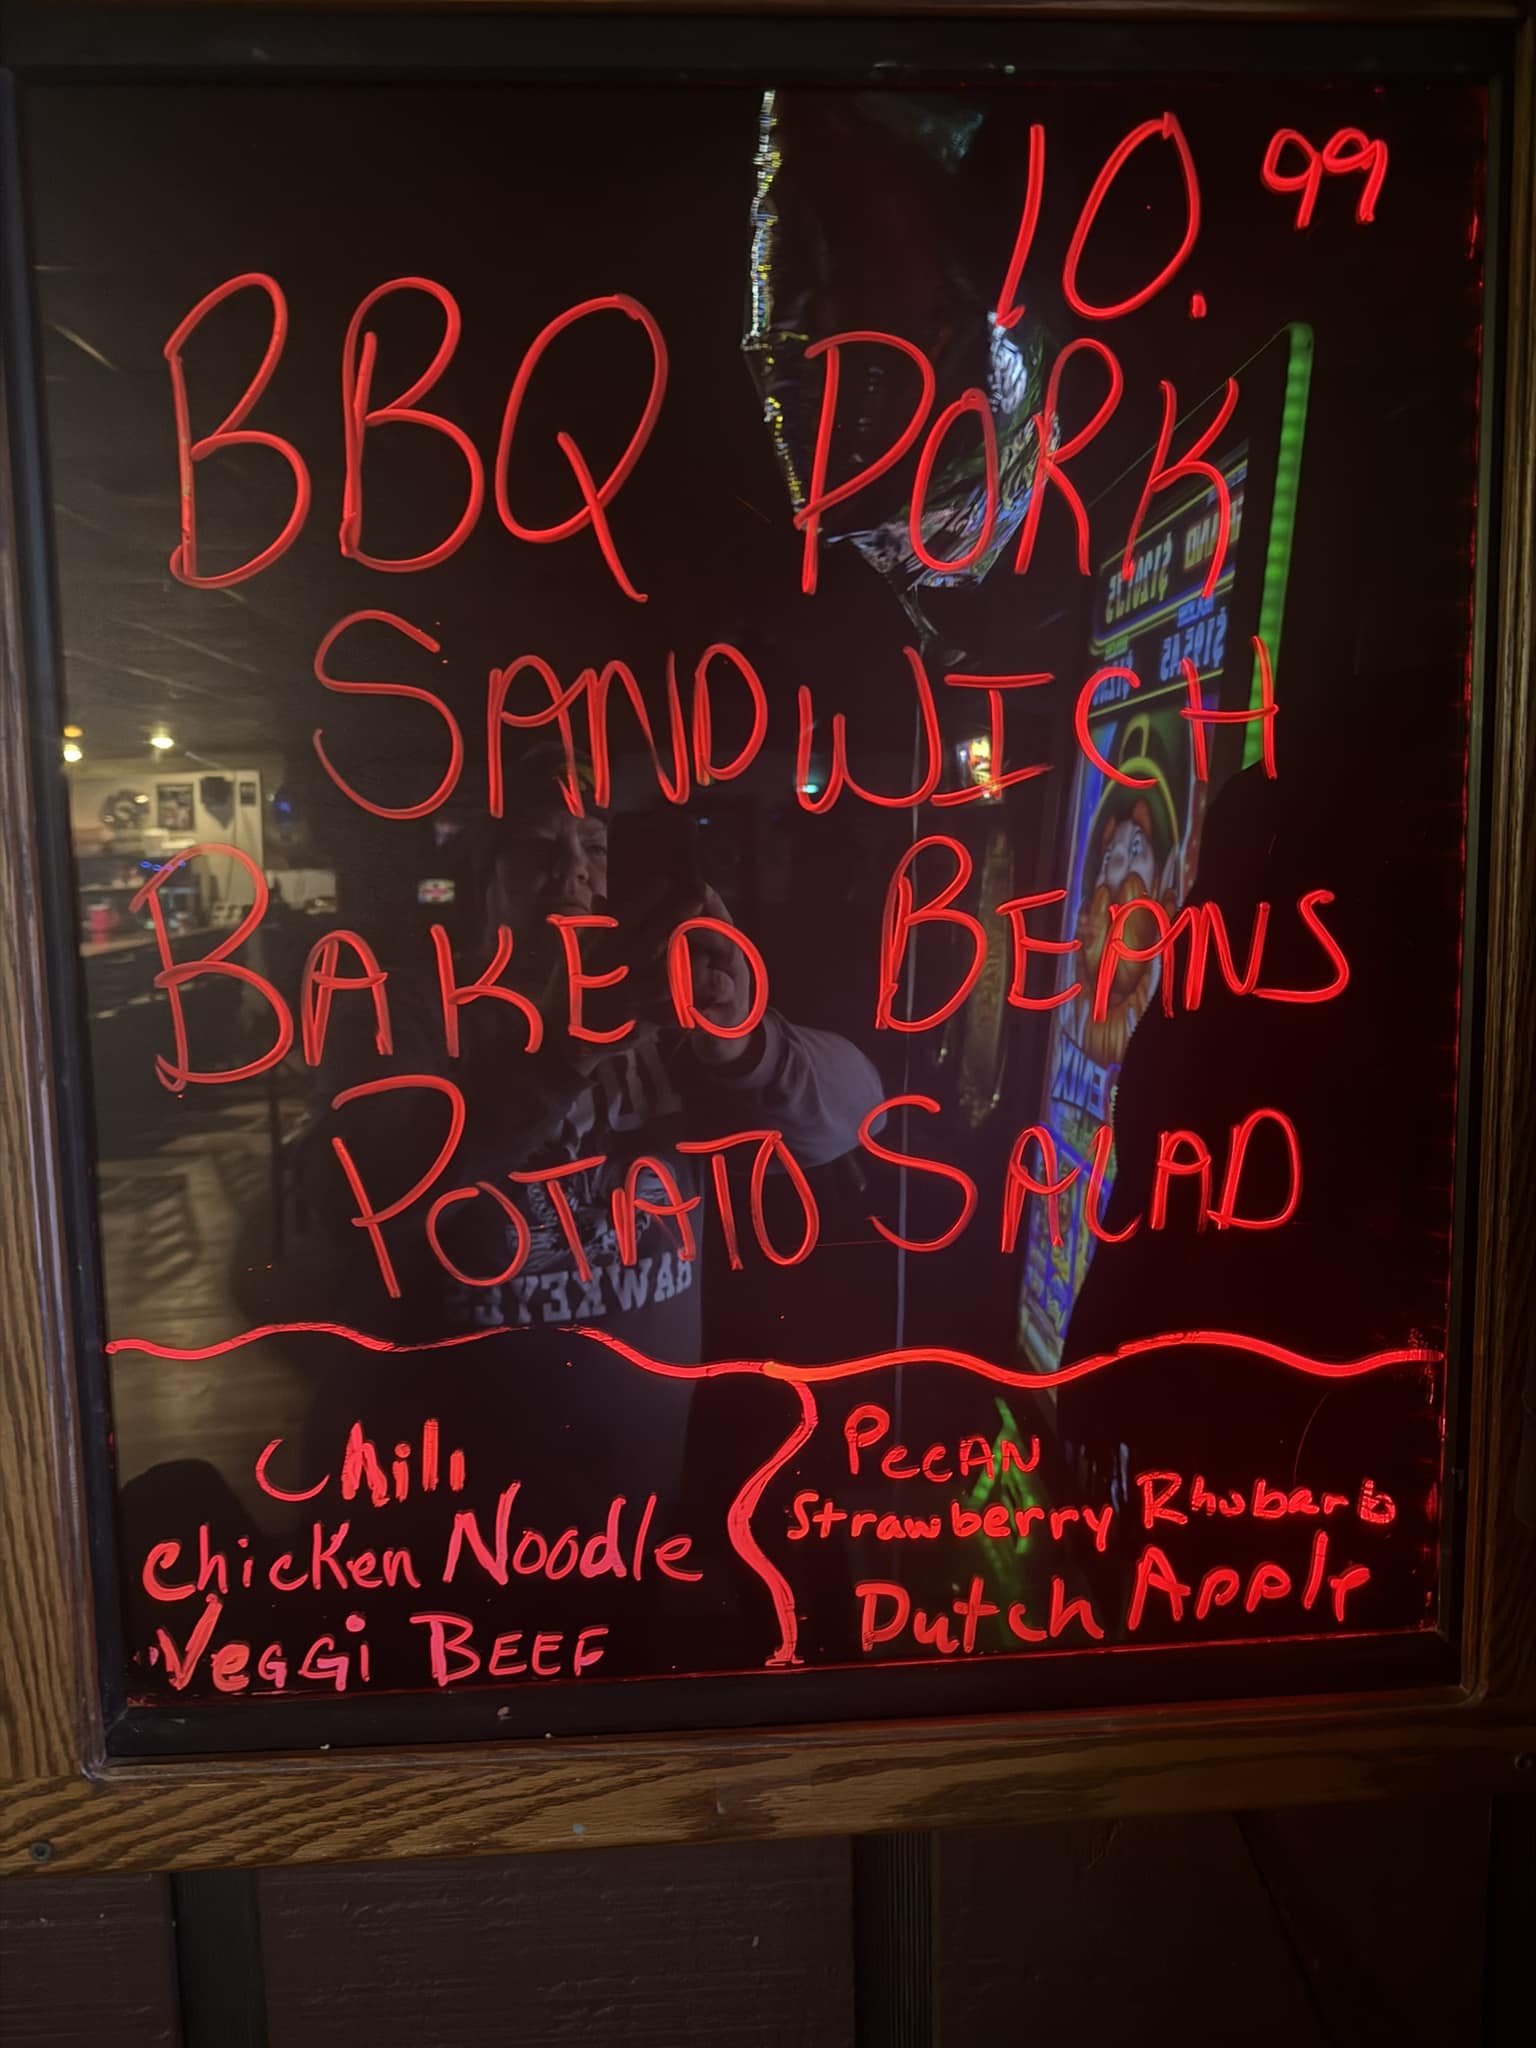 10.99
BBQ PORK
SANDWICH
BAKED BEANS
POTATO SALAD
Chili
Chicken Noodle
VeGGi BEEF
PecAN
Strawberry Rhubarb
Dutch Apple
HAWKEYES